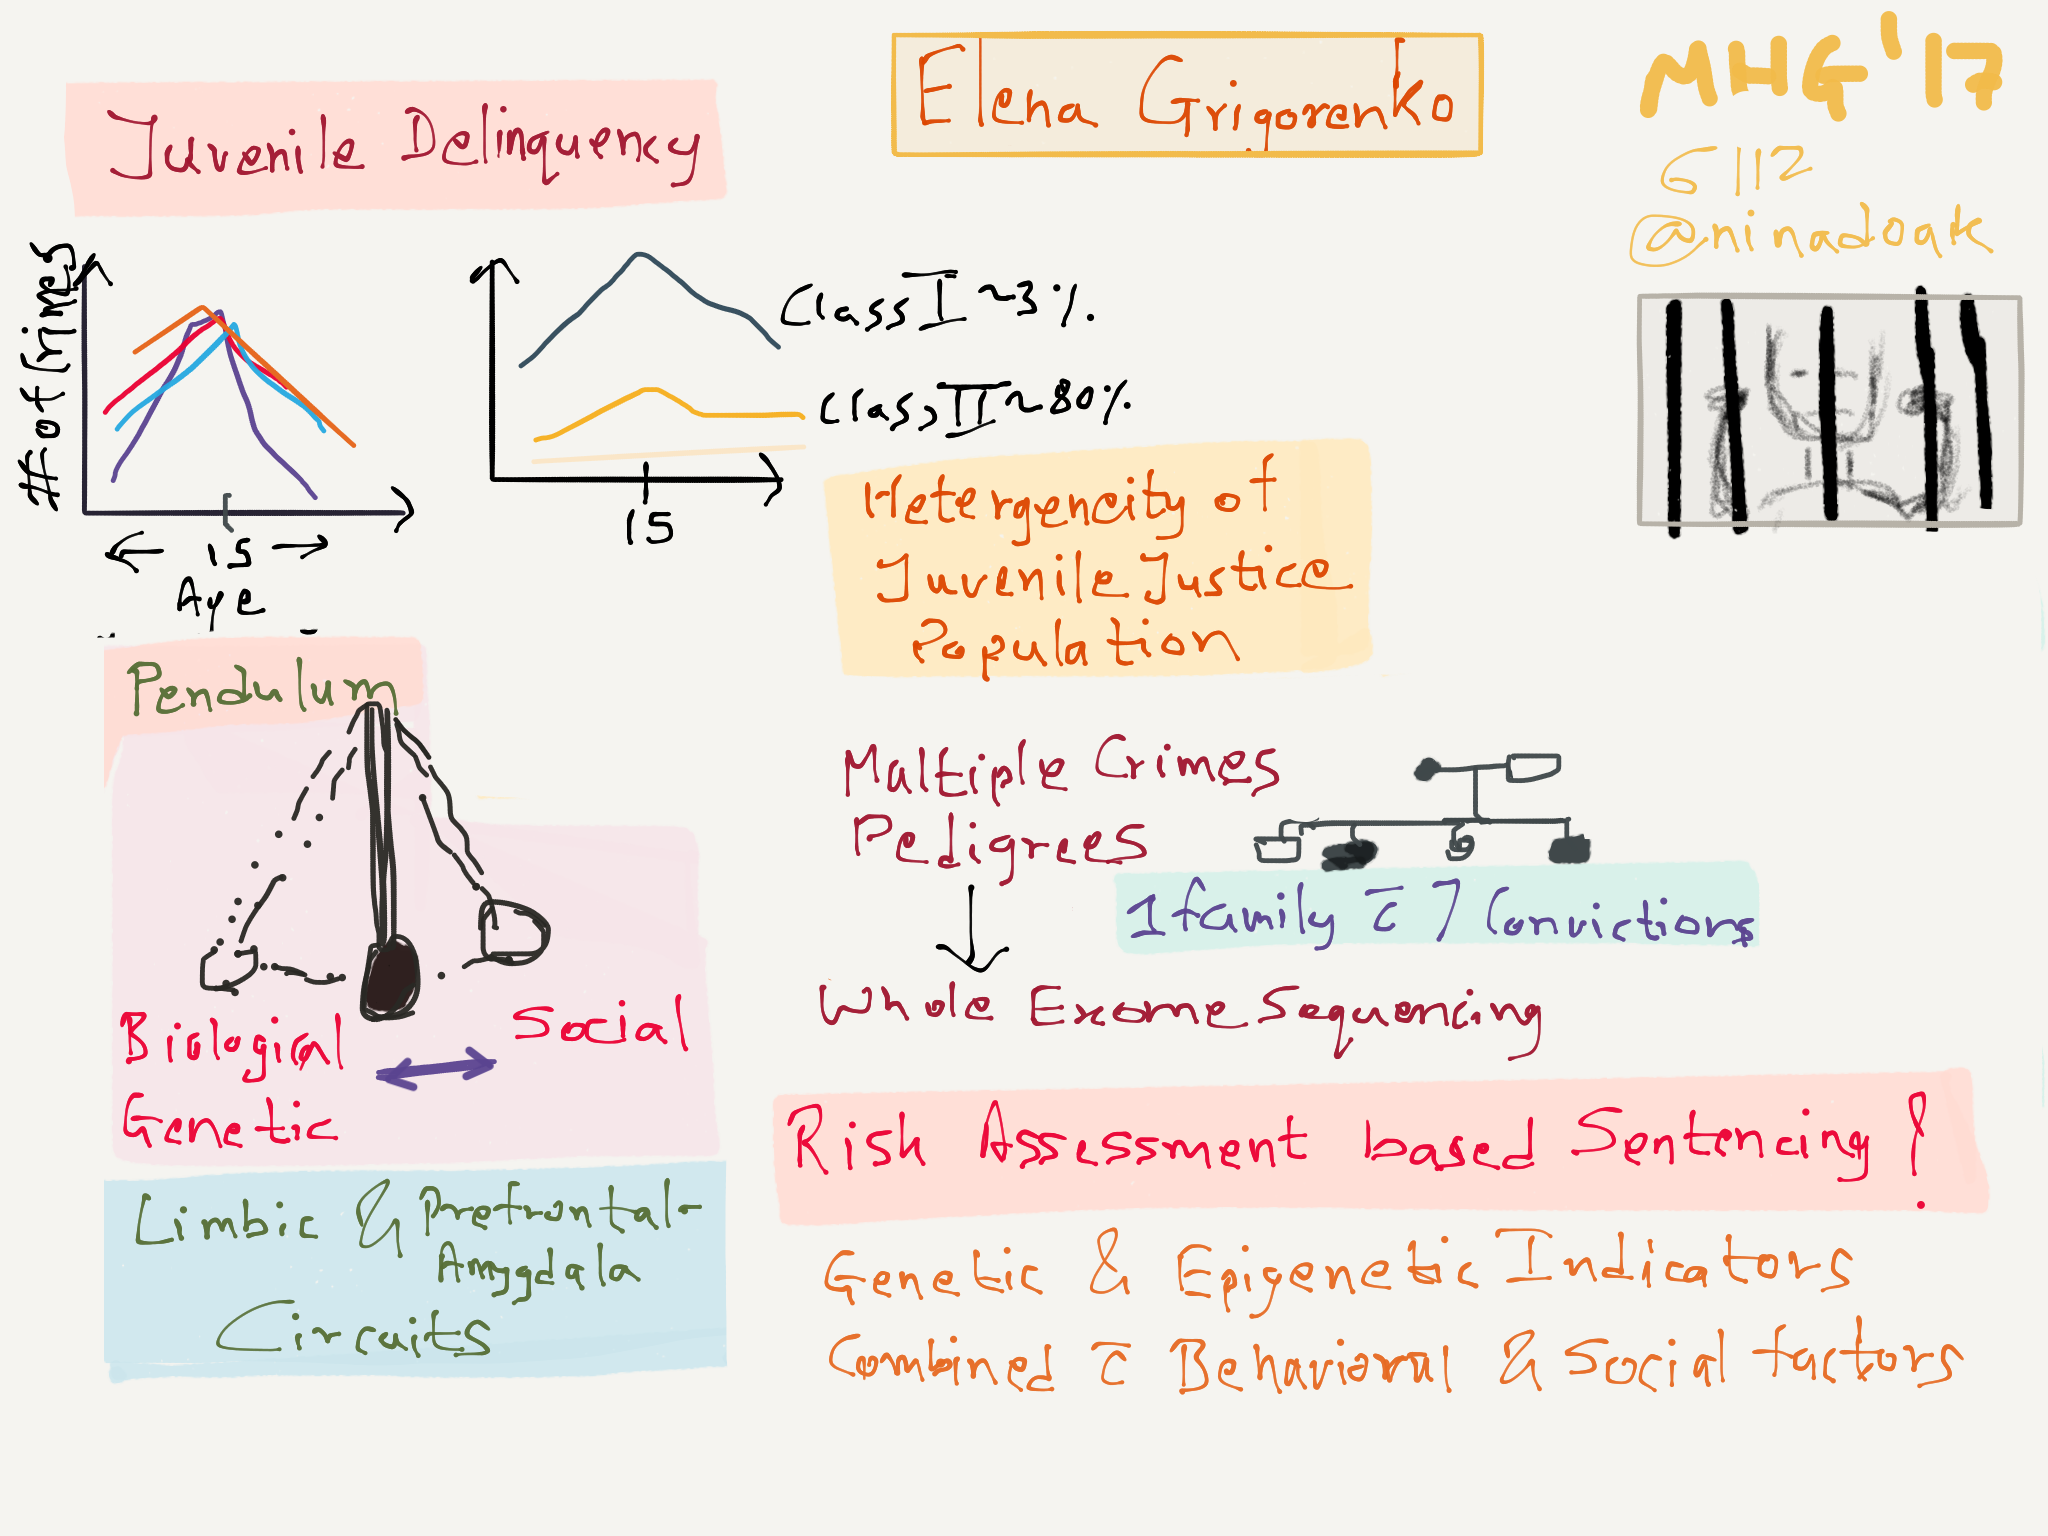 Juvenile Delinquency
Elena Grigorenko
MHG '17
5/12
@ninadoak
# of Crimes
15
Age
Class I ~3%.
Class II ~80%.
15
Hetergencity of
Juvenile Justice
Population
Pendulum
Biological
Genetic
Social
Limbic & Prefrontal-
Amygdala
Circuits
Multiple Crimes
Pedigrees
1 family c̄ 7 Convictions
Whole Exome Sequencing
Risk Assessment based Sentencing!
Genetic & Epigenetic Indicators
Combined c̄ Behavioral & Social factors